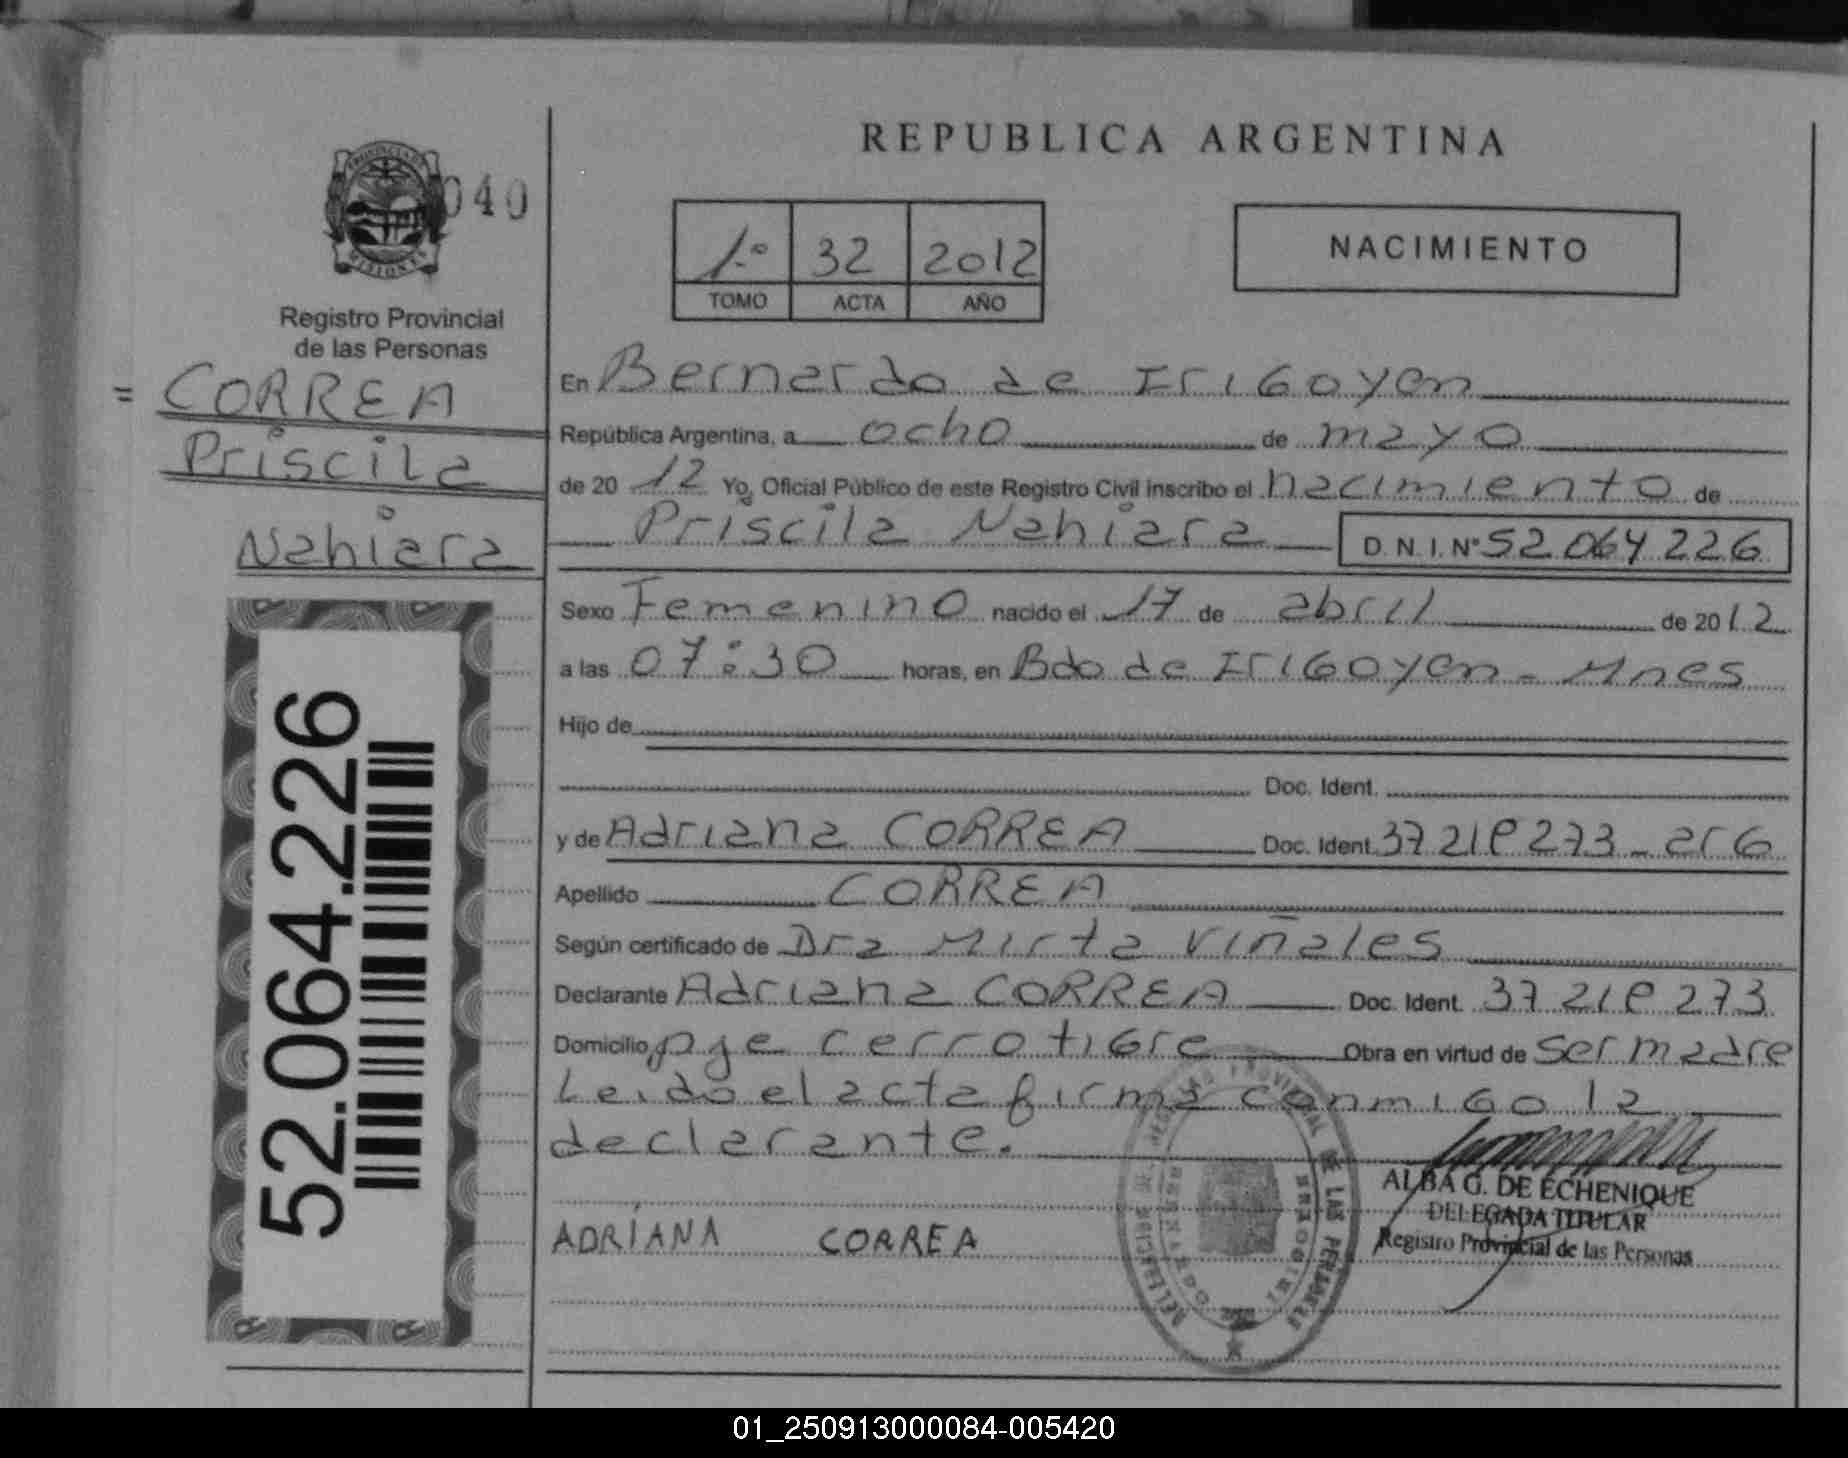 REPUBLICA ARGENTINA
PROVINCIA DE
MISIONES
040
Registro Provincial
de las Personas
= CORREA
Priscila
Nahiara
52.064.226
1º 32 2012
TOMO ACTA AÑO
NACIMIENTO
En Bernardo de Irigoyen
República Argentina, a ocho de mayo
de 2012 Yo, Oficial Público de este Registro Civil inscribo el nacimiento de
Priscila Nahiara D.N.I. Nº 52.064 226
Sexo Femenino nacido el 17 de abril de 2012
a las 07:30 horas, en Bdo de Irigoyen - Mnes
Hijo de
Doc. Ident.
y de Adriana CORREA Doc. Ident. 37 218 273 - arg
Apellido CORREA
Según certificado de Dra Mirta Viñales
Declarante Adriana CORREA Doc. Ident. 37 218 273
Domicilio pje cerro tigre Obra en virtud de ser madre
Leido el acta firma conmigo la
declarante.
ALBA G. DE ECHENIQUE
DELEGADA TITULAR
Registro Provincial de las Personas
ADRIANA CORREA
01_250913000084-005420